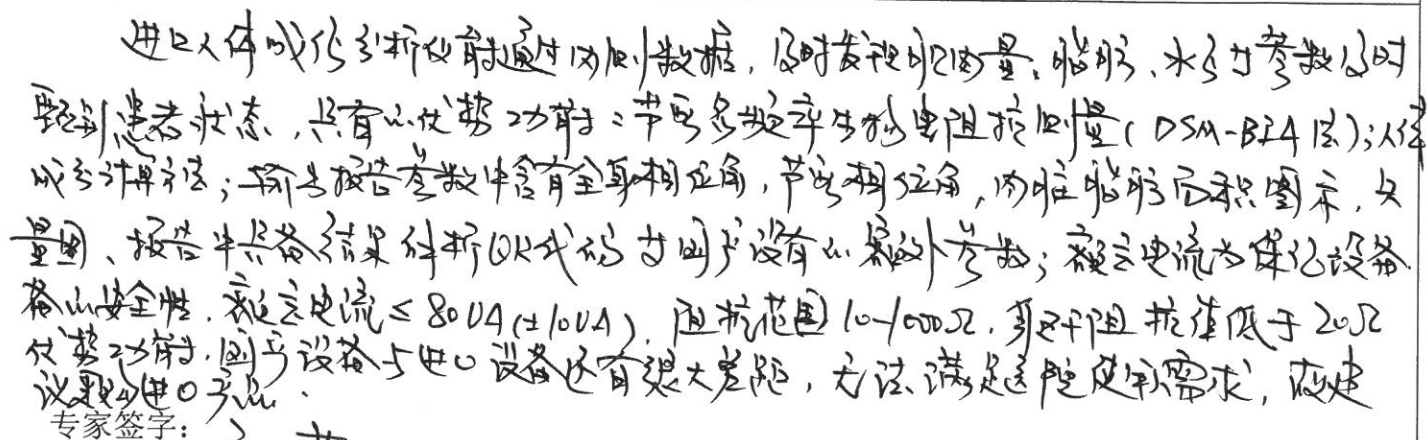 进口人体成份分析仪能通过内测数据,及时发现肌肉量、脂肪、水分等参数及时
甄别患者状态,具有的优势功能:节段多频率生物电阻抗测量(DSM-BIA法);人体
成分计算方法;输出报告参数中含有全身相位角,节段相位角,内脏脂肪面积图示,
量图、报告中具备结果解析QR代码等国产没有的额外参数;额定电流为保证设备
备的安全性,额定电流≤80UA(±10UA),阻抗范围10-1000Ω,躯干阻抗值低于20Ω
优势功能,国产设备与进口设备还有很大差距,无法满足医院使用需求,故建
议采购进口产品.
专家签字: